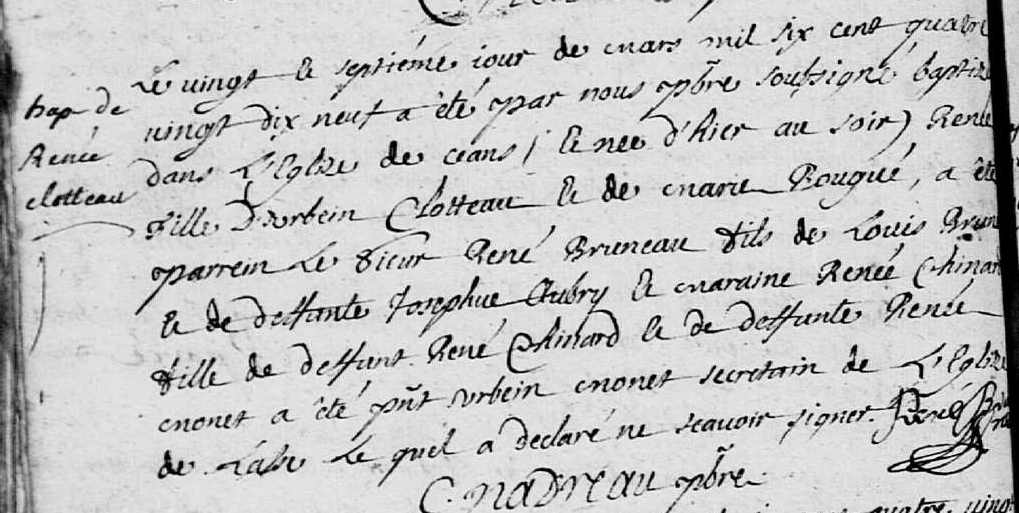 bap de
Renée
clotteau
Le vingt & septiéme iour de mars mil six cent quatre
vingt dix neuf a êté par nous pbre soubsigné baptize
dans L'Eglize de ceans ( & nee d'hier au soir ) Renée
fille D'urbein Clotteau & de marie Rougué, a êté
parrein Le sieur René Bruneau fils de Louis Brun
& de deffunte Josephue Aubry & maraine Renée Chinard
fille de deffunt René Chinard & de deffunte Renée
monet a êté pnt urbein monet secretain de L'Eglize
de Lasse Le quel a declaré ne scavoir signer. René
C. nadreau pbre
quatre vingt